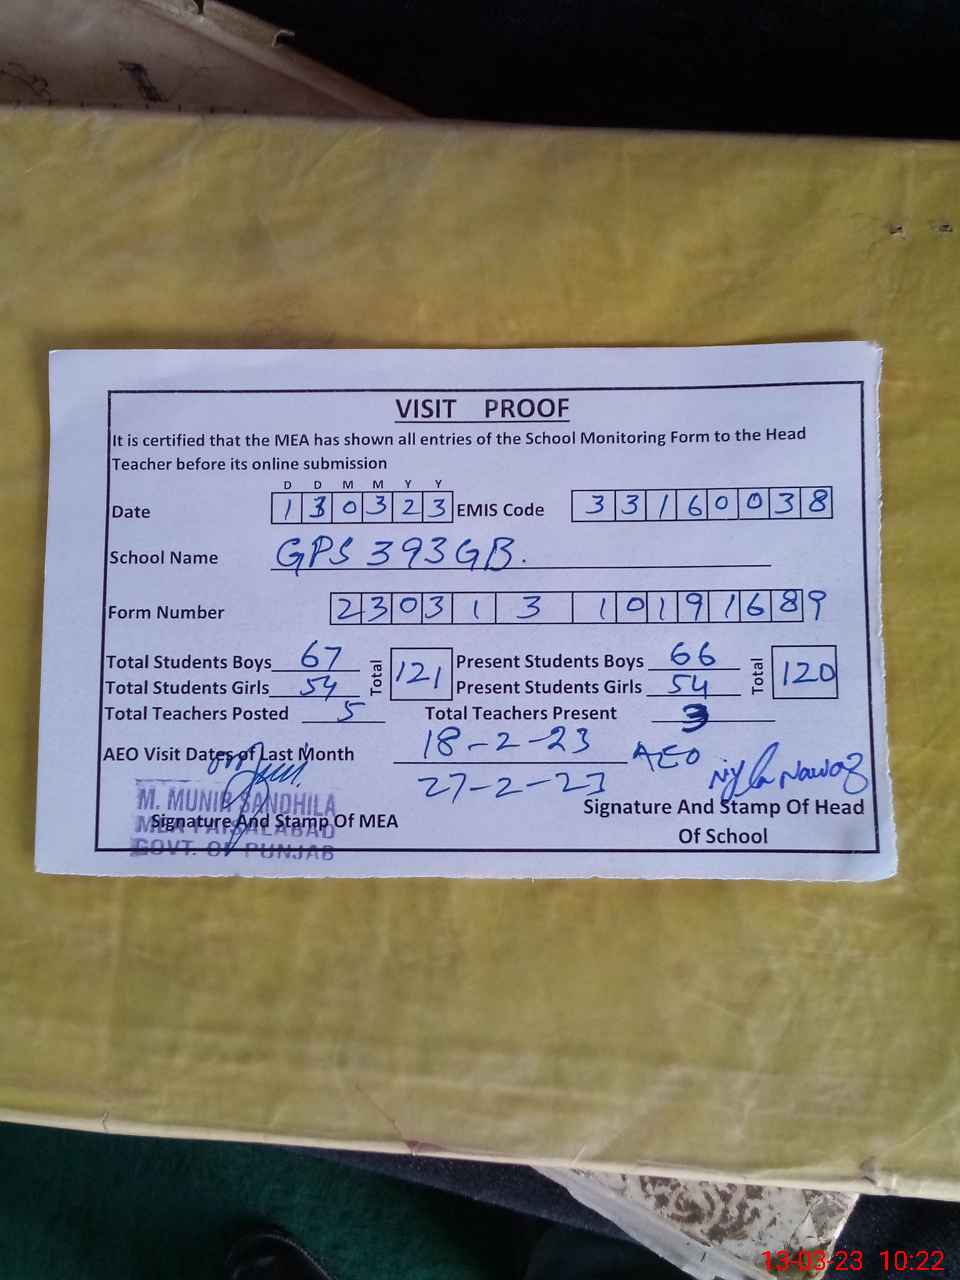 VISIT PROOF
It is certified that the MEA has shown all entries of the School Monitoring Form to the Head
Teacher before its online submission
D D M M Y Y
Date 1 3 0 3 2 3 EMIS Code 3 3 1 6 0 0 3 8
School Name GPS 393 GB.
Form Number 2 3 0 3 1 3 1 0 1 9 1 6 8 9
Total Students Boys 67 Total 121 Present Students Boys 66 Total 120
Total Students Girls 54 Present Students Girls 54
Total Teachers Posted 5 Total Teachers Present 3
AEO Visit Dates of Last Month 18-2-23 AEO
27-2-23
M. MUNIR SANDHILA
Signature And Stamp Of MEA
MEA FAISALABAD
GOVT. OF PUNJAB
Nawaz
Signature And Stamp Of Head
Of School
13-03-23 10:22